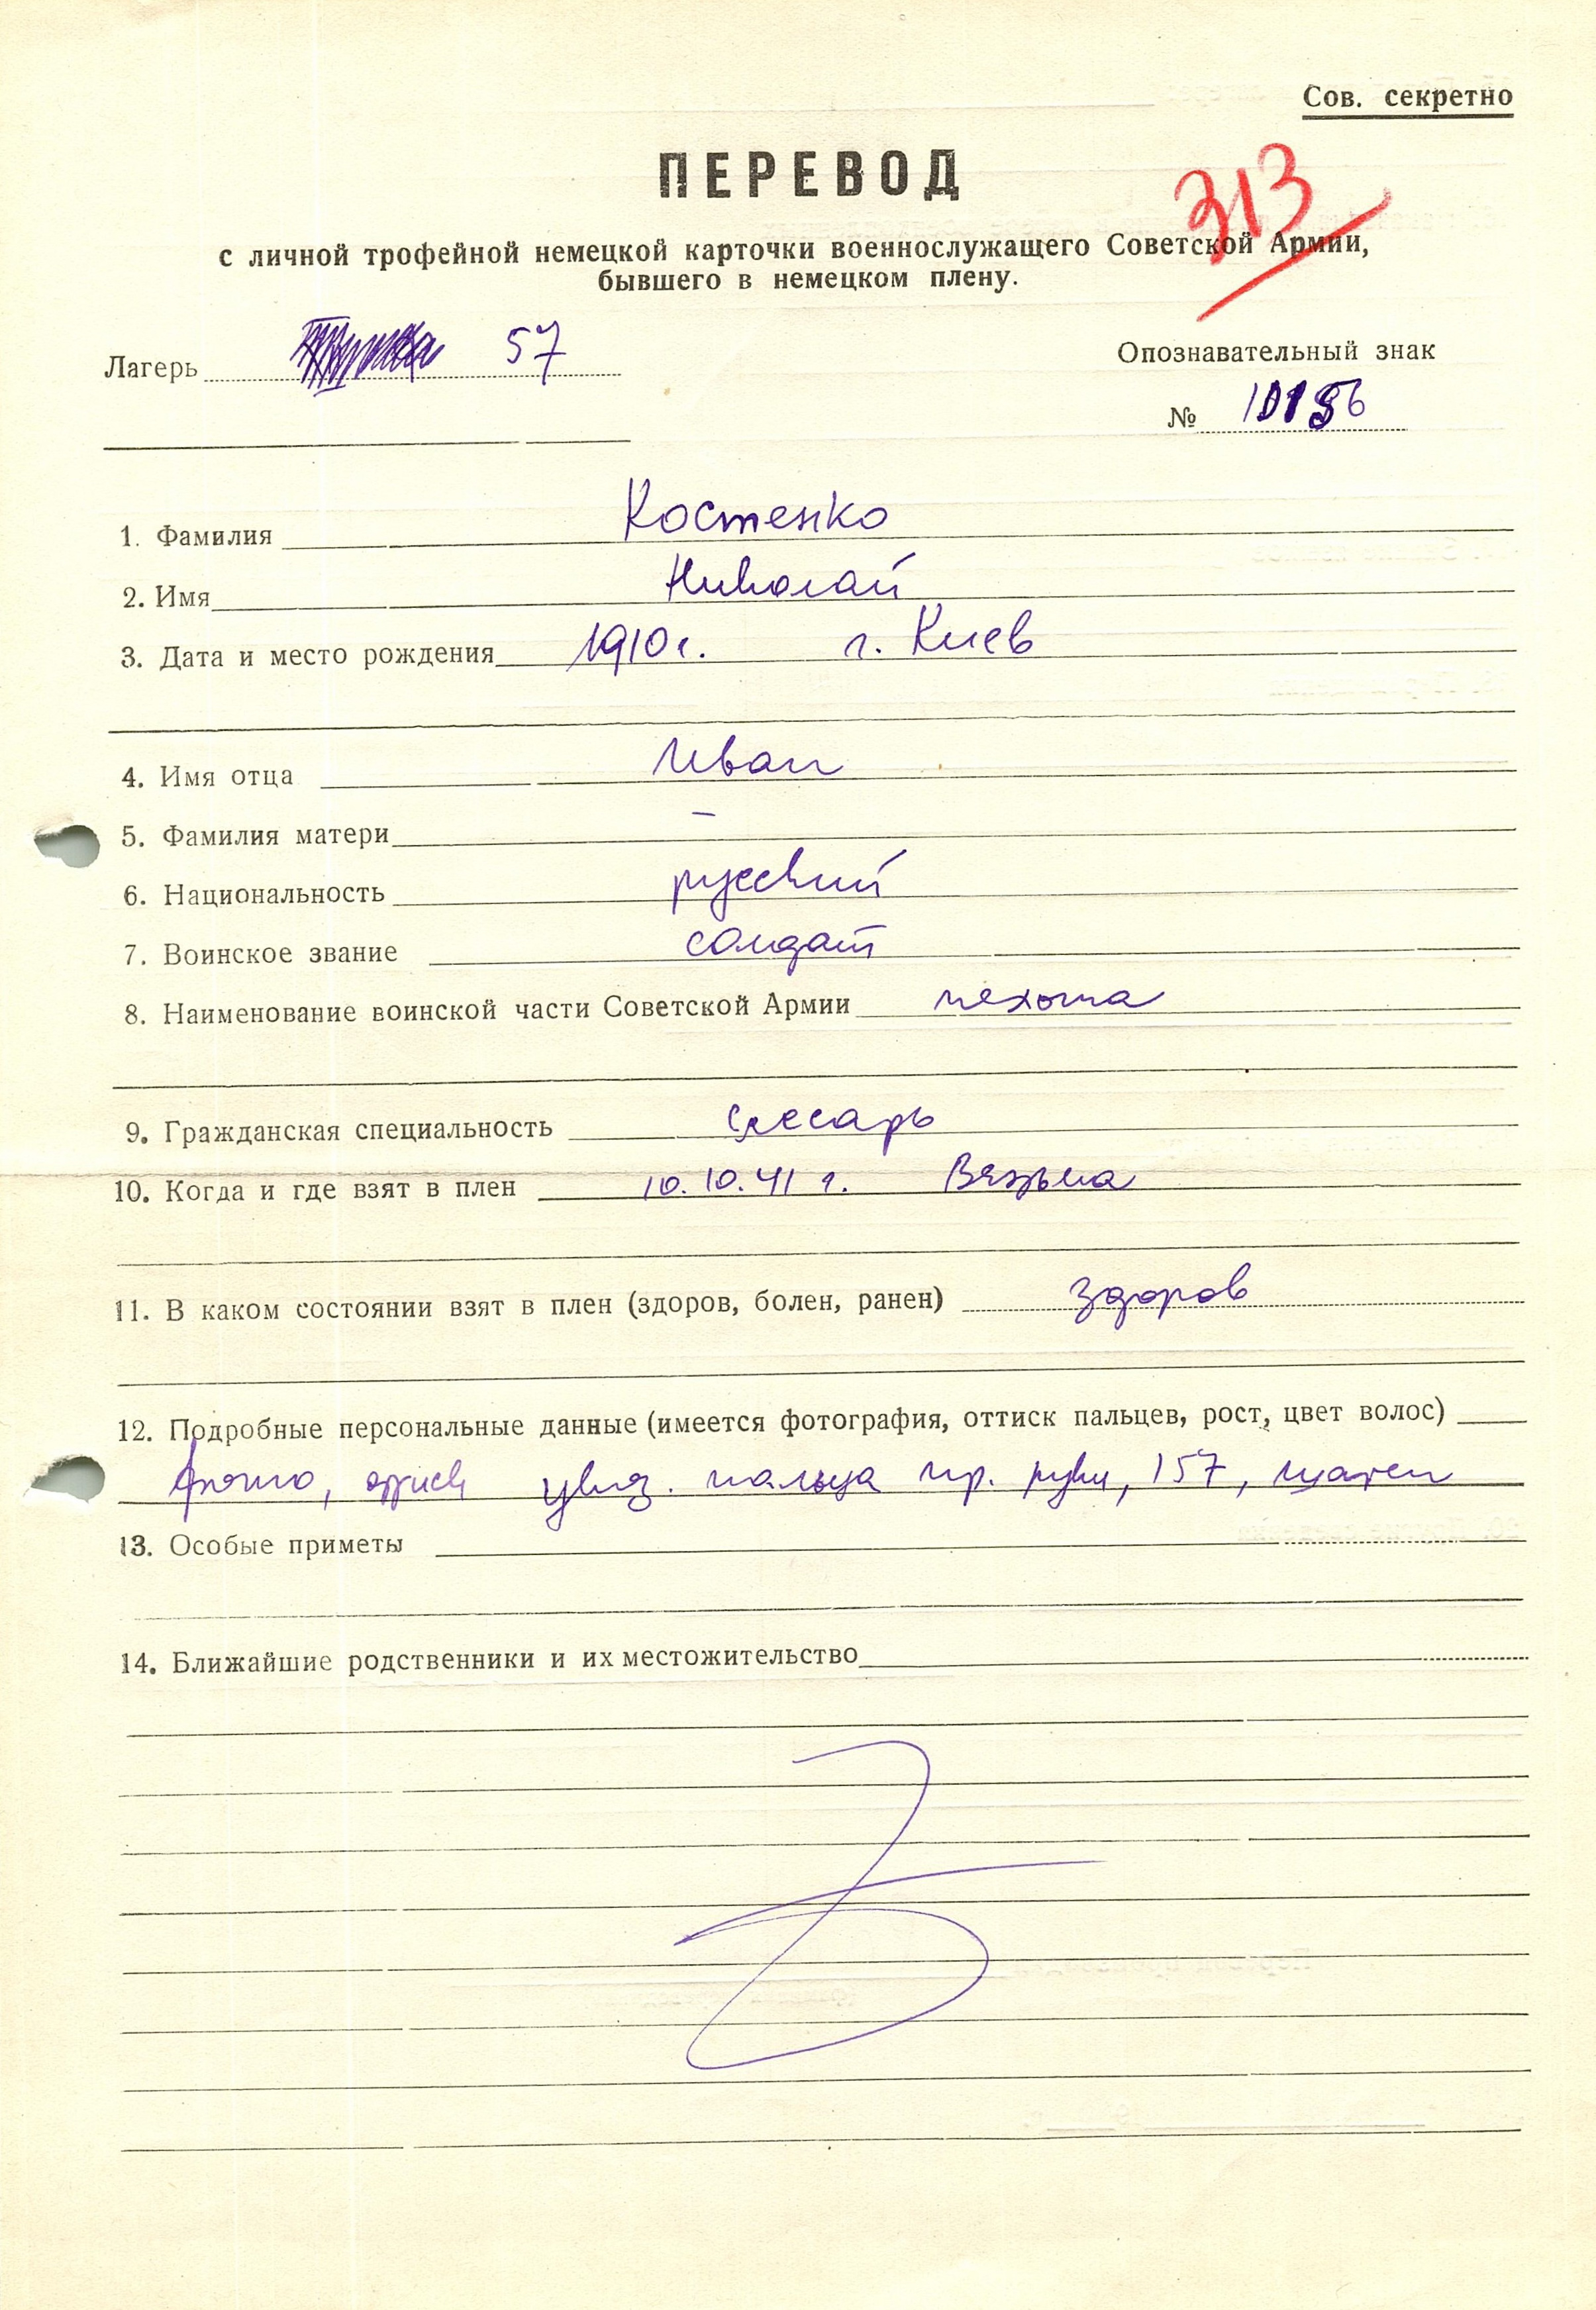 Сов. секретно
ПЕРЕВОД
313
с личной трофейной немецкой карточки военнослужащего Советской Армии,
бывшего в немецком плену.
Лагерь 57
Опознавательный знак
№ 10156
1. Фамилия Костенко
2. Имя Николай
3. Дата и место рождения 1910 г. г. Киев
4. Имя отца Иван
5. Фамилия матери –
6. Национальность русский
7. Воинское звание солдат
8. Наименование воинской части Советской Армии пехота
9. Гражданская специальность слесарь
10. Когда и где взят в плен 10.10.41 г. Вязьма
11. В каком состоянии взят в плен (здоров, болен, ранен) здоров
12. Подробные персональные данные (имеется фотография, оттиск пальцев, рост, цвет волос)
фото, оттиск указ. пальца пр. руки, 157, шатен
13. Особые приметы
14. Ближайшие родственники и их местожительство